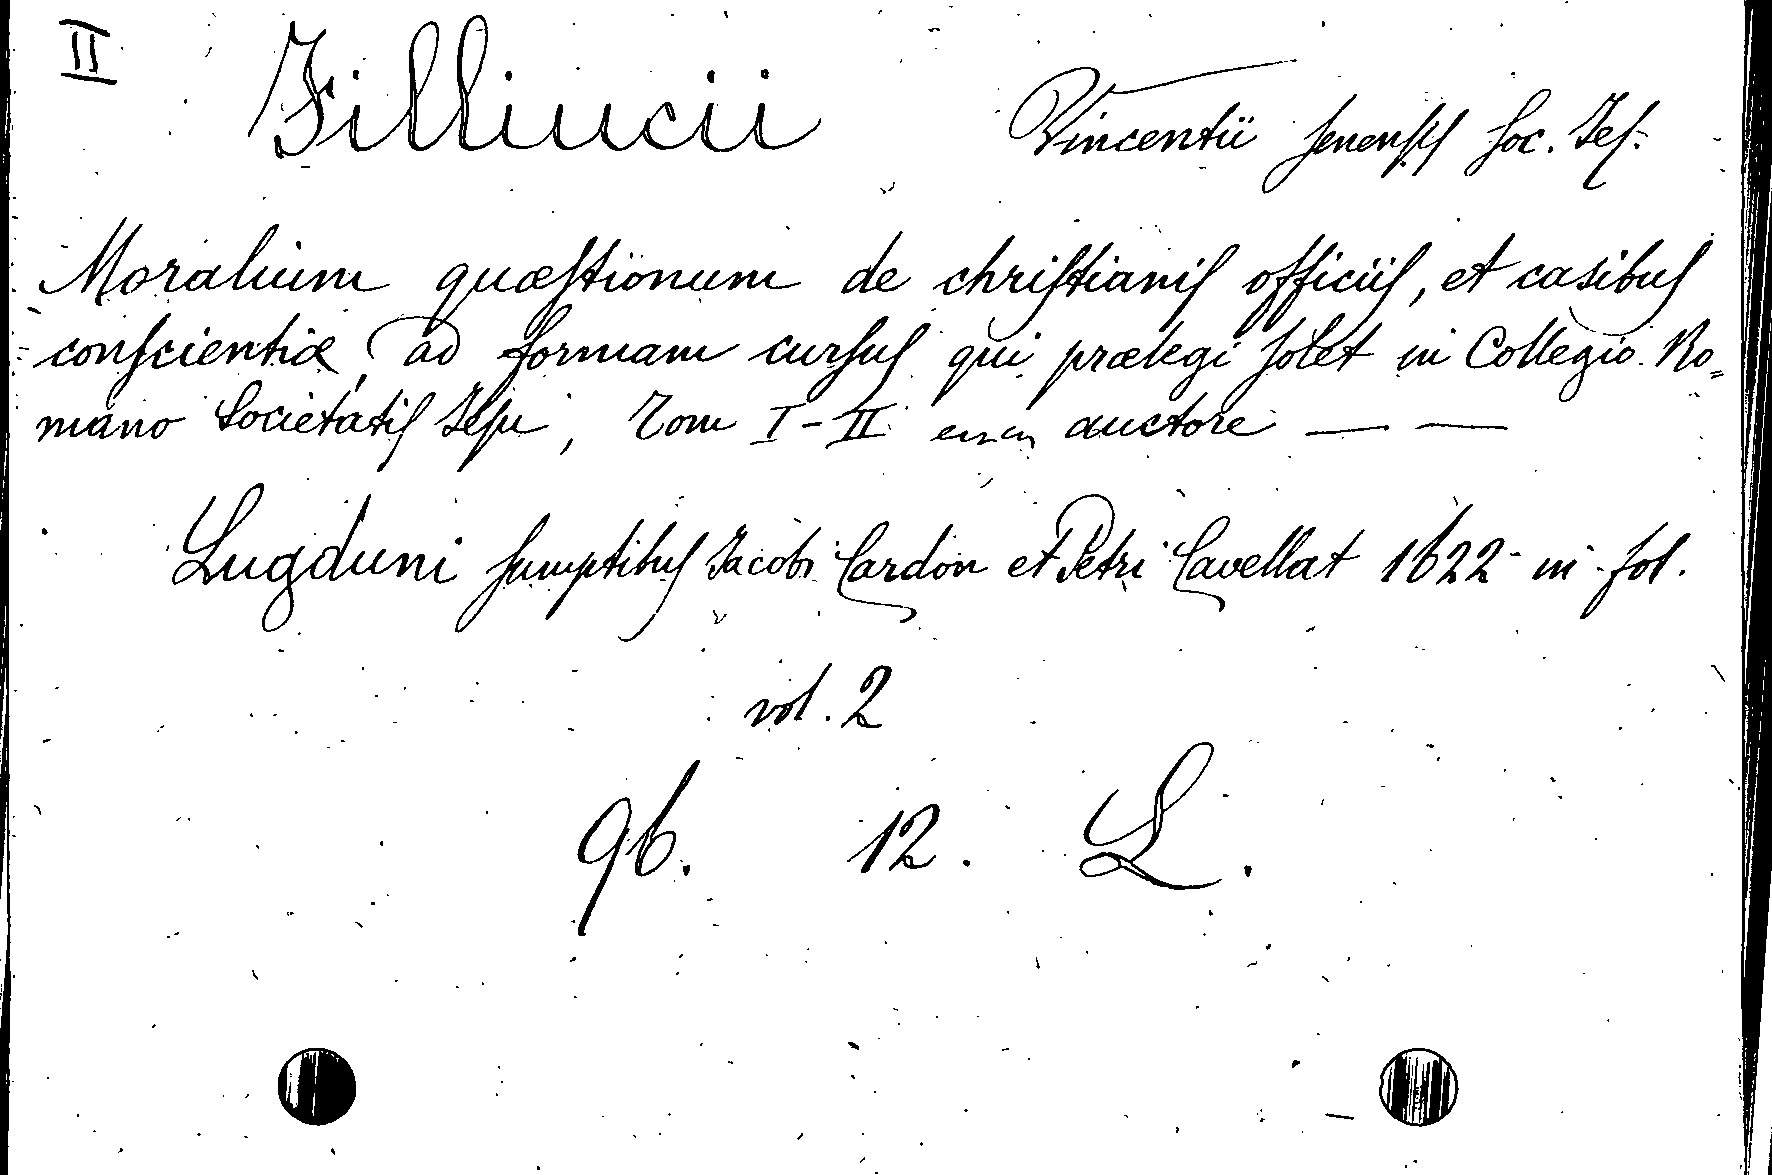 II Filliucii Vincentii senensis Soc. Jes.
Moralium quæstionum de christianis officiis, et casibus
conscientiæ, ad formam cursus qui prælegi solet in Collegio Ro=
mano Societatis Jesu, Tom I-II auctore — —
Lugduni sumptibus Jacobi Cardon et Petri Cavellat 1622 in fol.
vol. 2
96. 12. L.